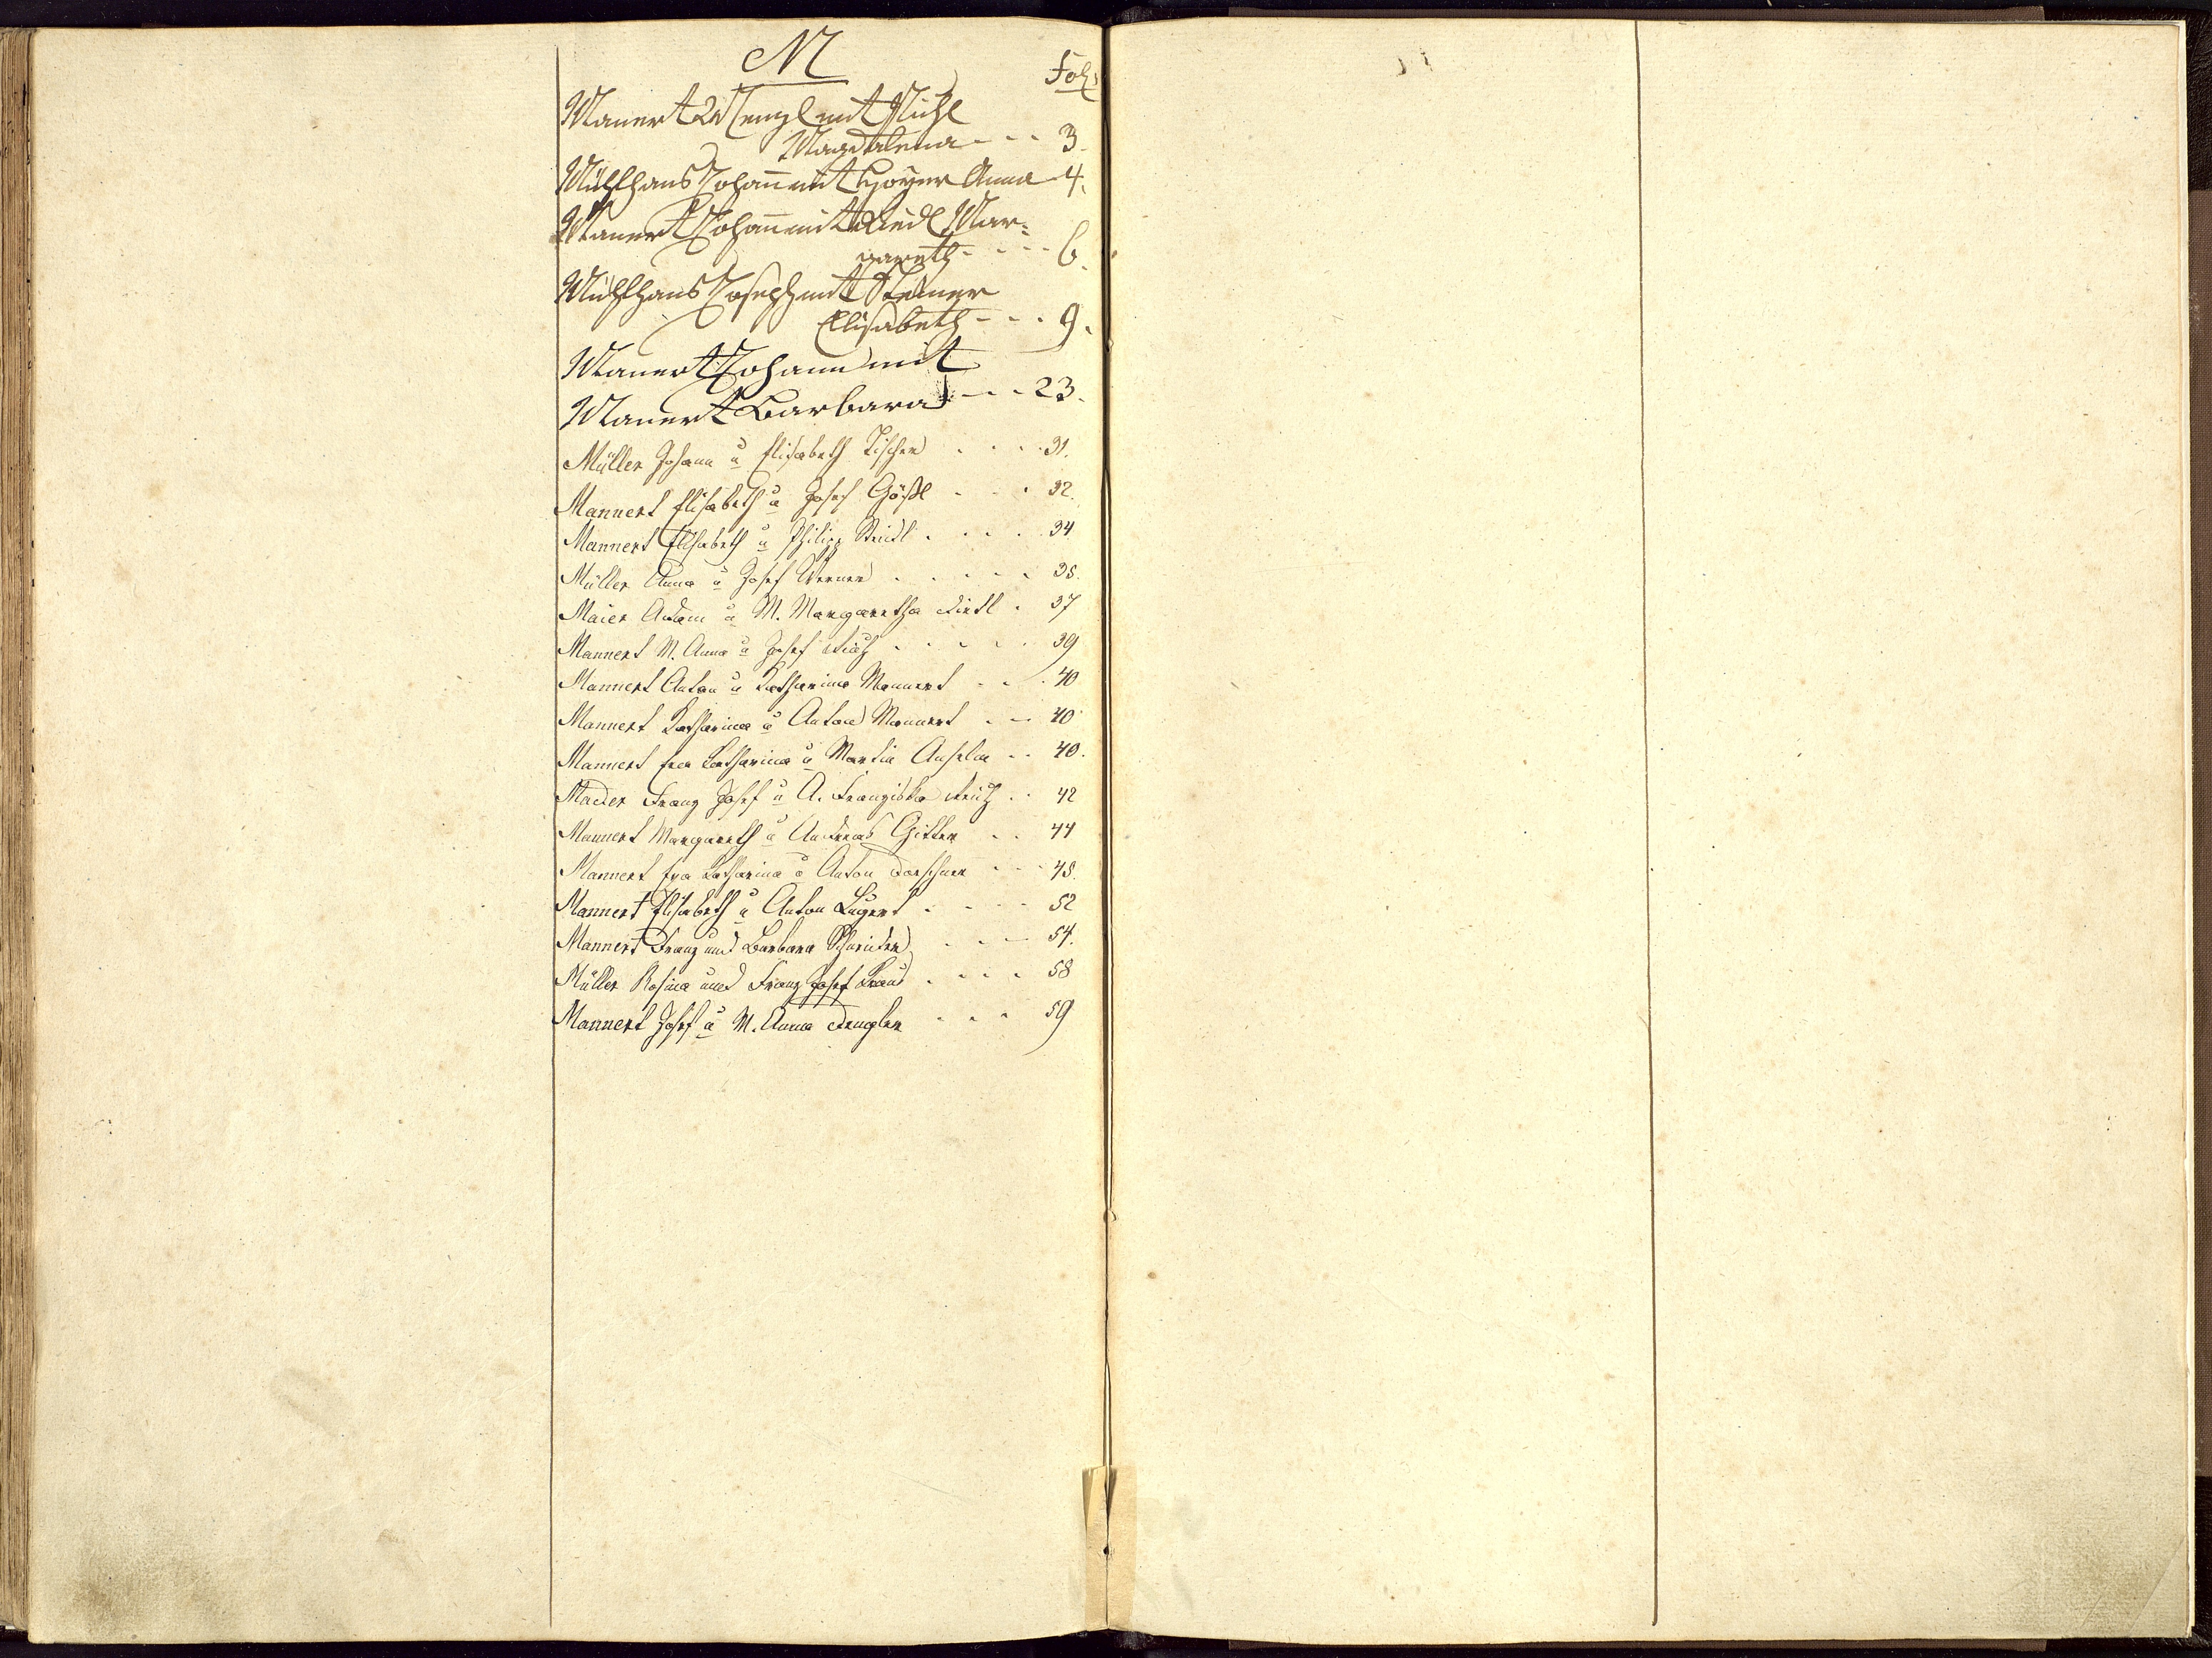 M
Fol:
Manert Wenzl mit Pichl
Magdalena - - - 3.
Mühlhans Johan̅ mit Hoyer Anna 4.
Manert Johan̅ mit Riedl Mar=
gareth - - - - 6.
Mühlhans Joseph mit Steiner
Elisabeth - - - 9.
Manert Johann mit
Manert Barbara - - - 23.
Müller Johann u Elisabeth Tischer . . . . 31.
Mannert Elisabeth u Josef Gößl . . . 32.
Mannert Elisabeth u Philipp Riedl . . . . 34
Müller Anna u Josef Werner . . . . . 35.
Maier Adam u M. Margaretha Riedl . 37
Mannert M. Anna u Josef . . . . . 39
Mannert Anton u Katharina Mannert . . . 40
Mannert Katharina u Anton Mannert . . 40
Mannert Eva Katharina u Martin Anselm . . 40.
Mader Franz Josef u A. Franziska . . 42
Mannert Margareth u Andreas Gitter . . 44
Mannert Eva Katharina u Anton Darschner . . . 48.
Mannert Elisabeth u Anton Lugert . . . . 52
Mannert Franz und Barbara Schneider . . . 54.
Müller Rosina und Franz Josef Kraus . . . . 58
Mannert Josef u M. Anna Dengler . . . 59